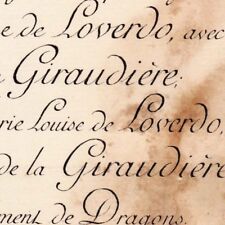 se de Loverdo, avec
Giraudière;
rie Louise de Loverdo,
de la Giraudière
ment de Dragons.